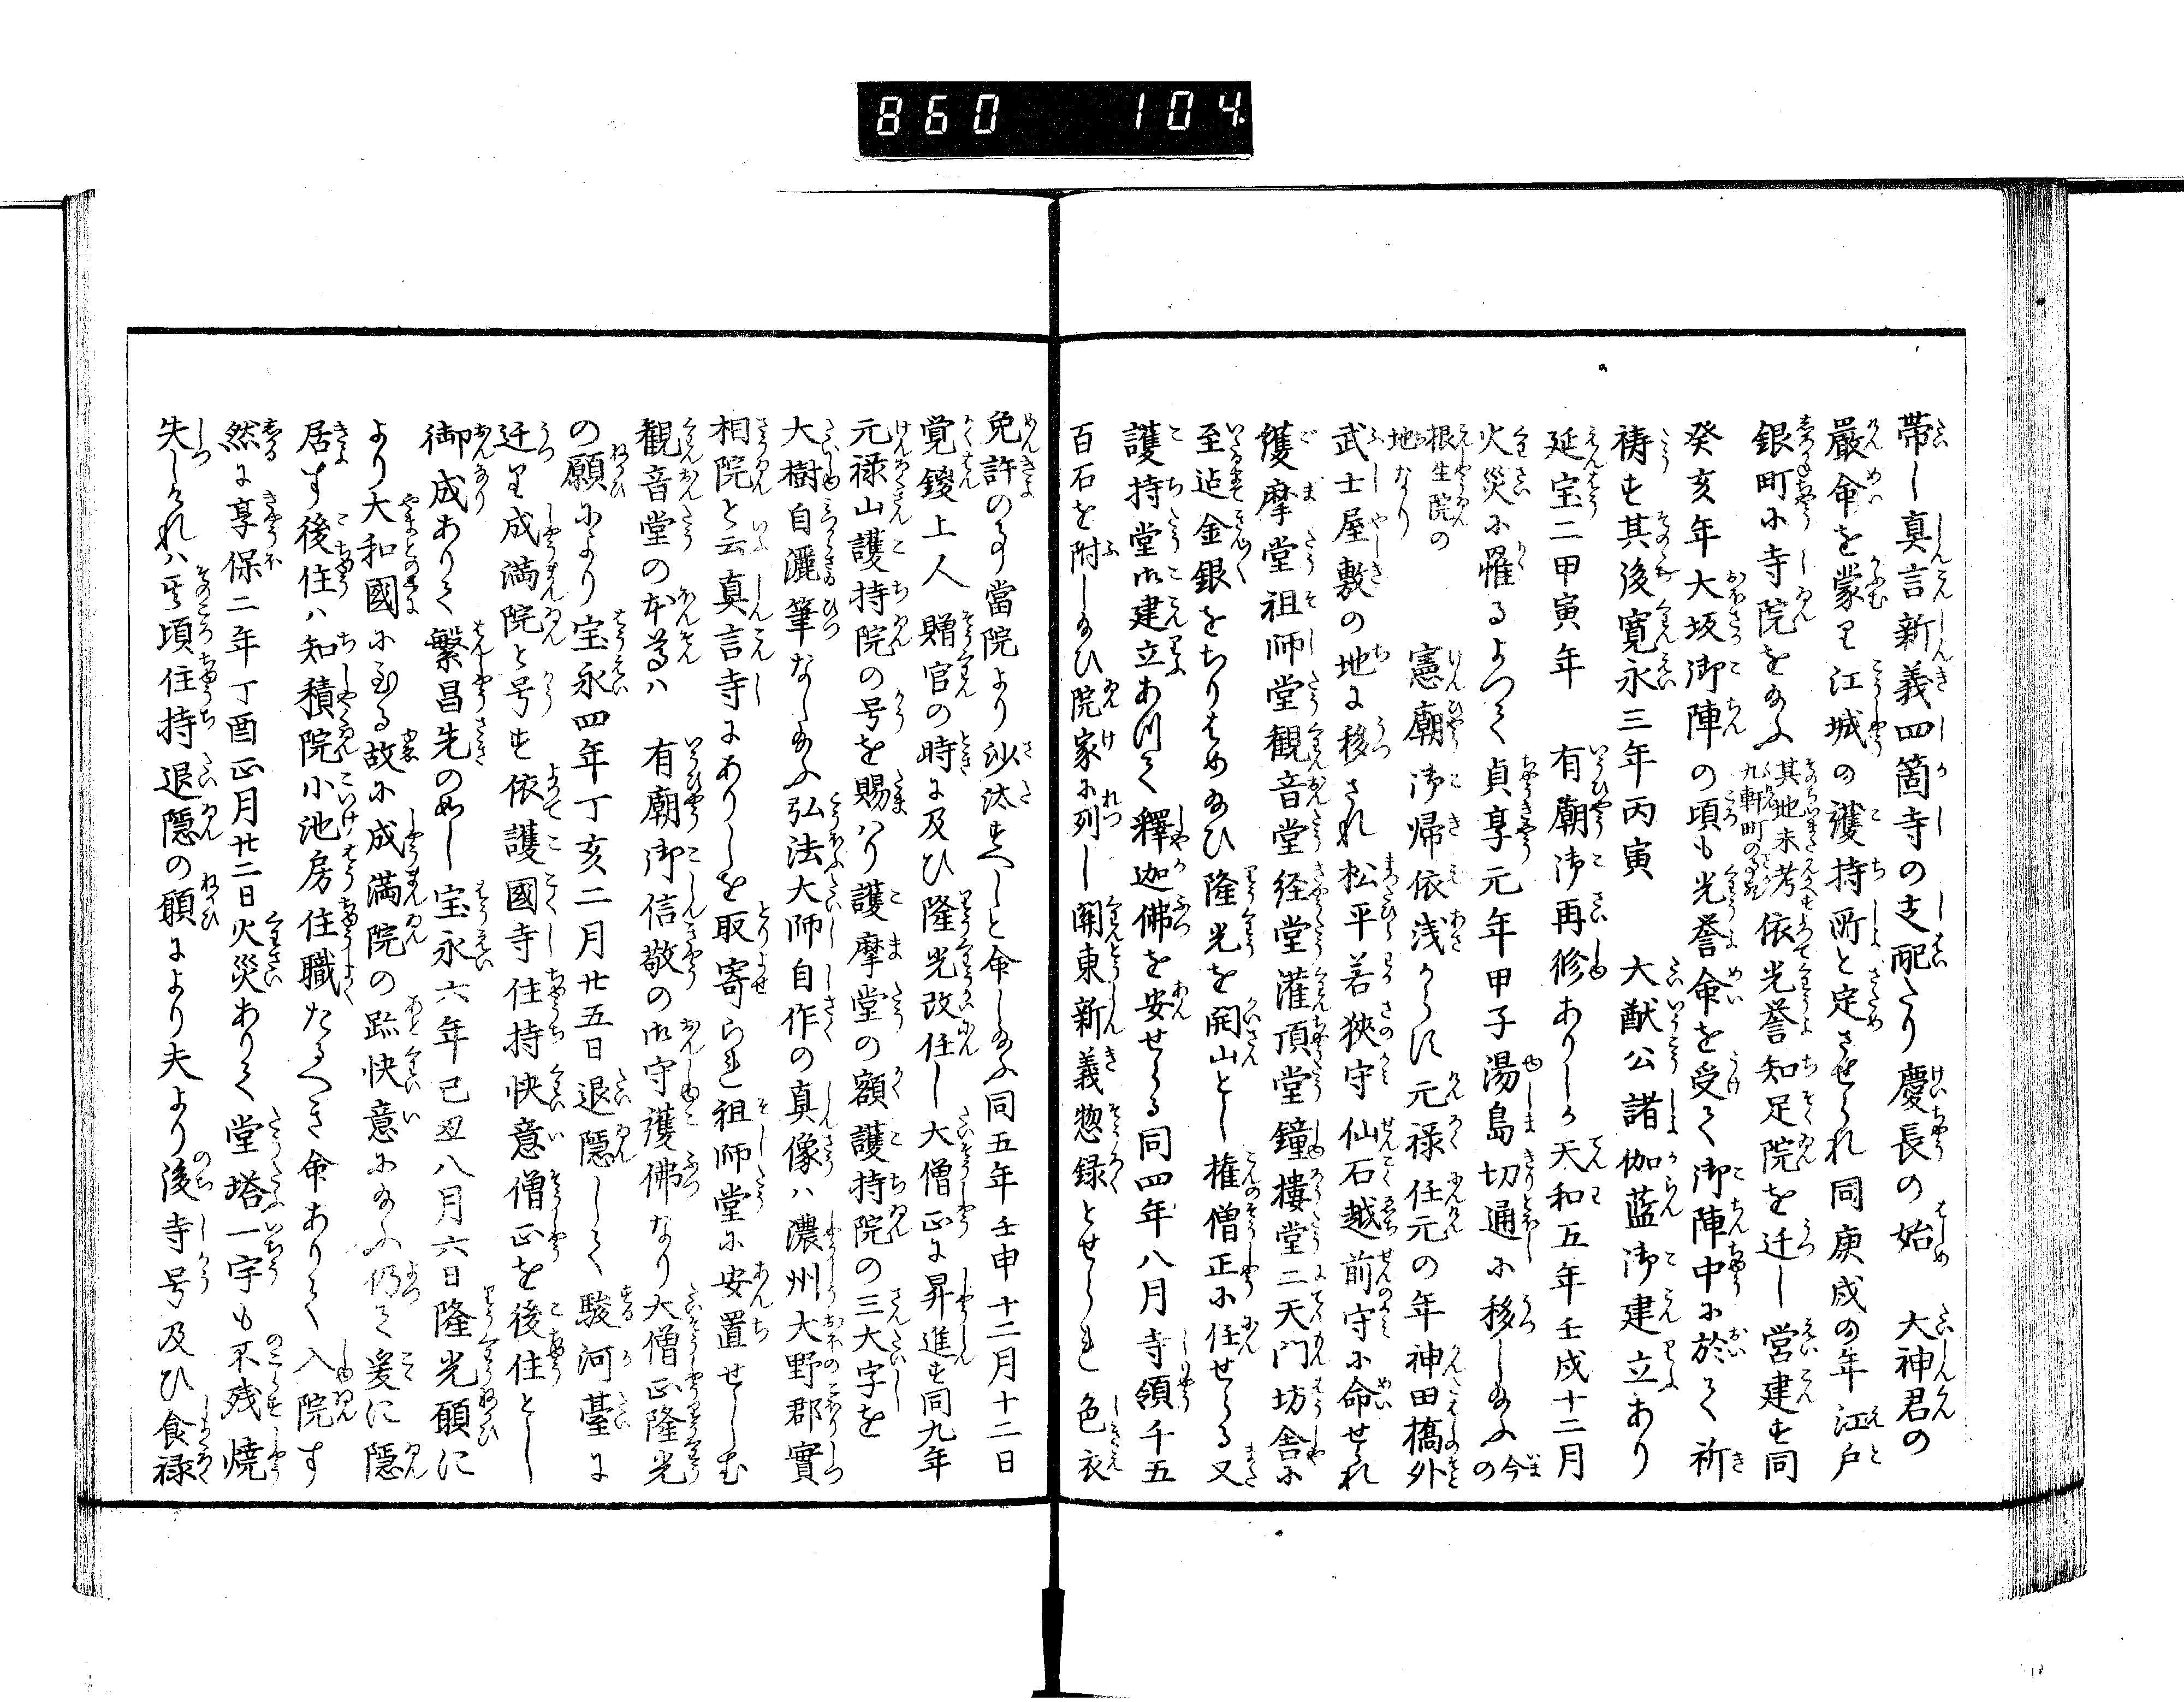 860 104
帯し真言新義四箇寺の支配たり慶長の始　大神君の
嚴命を蒙り江城の護持所と定させられ同庚戌の年江戸
銀町に寺院を給ふ其地未考九軒町の依光誉知足院を迁し営建す同
癸亥年大坂御陣の頃も光誉命を受て御陣中に於て祈
祷す其後寛永三年丙寅　大猷公諸伽藍御建立あり
延宝二甲寅年　有廟御再修ありしか天和五年壬戌十二月
火災に罹るよつて貞享元年甲子湯島切通に移し給ふ今の
根生院の地なり　憲廟御帰依浅からす元禄任元の年神田橋外
武士屋敷の地に移され松平若狭守仙石越前守に命せられ
護摩堂祖師堂観音堂経堂灌頂堂鐘樓堂二天門坊舎に
至迠金銀をちりはめ給ひ隆光を開山とし権僧正に任せらる又
護持堂御建立あつて釋迦佛を安せらる同四年八月寺領千五
百石を附し給ひ院家に列し関東新義惣録とせられ色衣
免許の事當院より沙汰すへしと命し給ふ同五年壬申十二月十二日
覚鑁上人贈官の時に及ひ隆光改任し大僧正に昇進す同九年
元禄山護持院の号を賜はり護摩堂の額護持院の三大字を
大樹自灑筆なし給ふ弘法大師自作の真像ハ濃州大野郡實
相院と云真言寺にありしを取寄られ祖師堂に安置せしむ
観音堂の本尊ハ　有廟御信敬の御守護佛なり大僧正隆光
の願により宝永四年丁亥二月廿五日退隠して駿河臺に
迁り成満院と号す依護國寺住持快意僧正を後住とし
御成ありて繁昌先の如し宝永六年己丑八月六日隆光願に
より大和國に至る故に成満院の跡快意に給ふ仍て爰に隠
居す後住ハ知積院小池房住職たるへき命ありて入院す
然に享保二年丁酉正月廿二日火災ありて堂塔一宇も不残焼
失しけれハ其頃住持退隠の願により夫より後寺号及ひ食禄